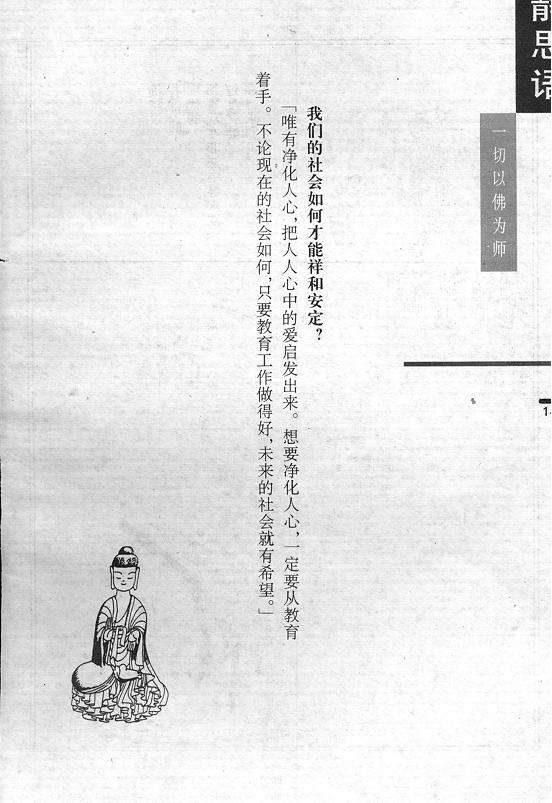 静思语
一切以佛为师
我们的社会如何才能祥和安定?
「唯有净化人心,把人人心中的爱启发出来。想要净化人心,一定要从教育
着手。不论现在的社会如何,只要教育工作做得好,未来的社会就有希望。」